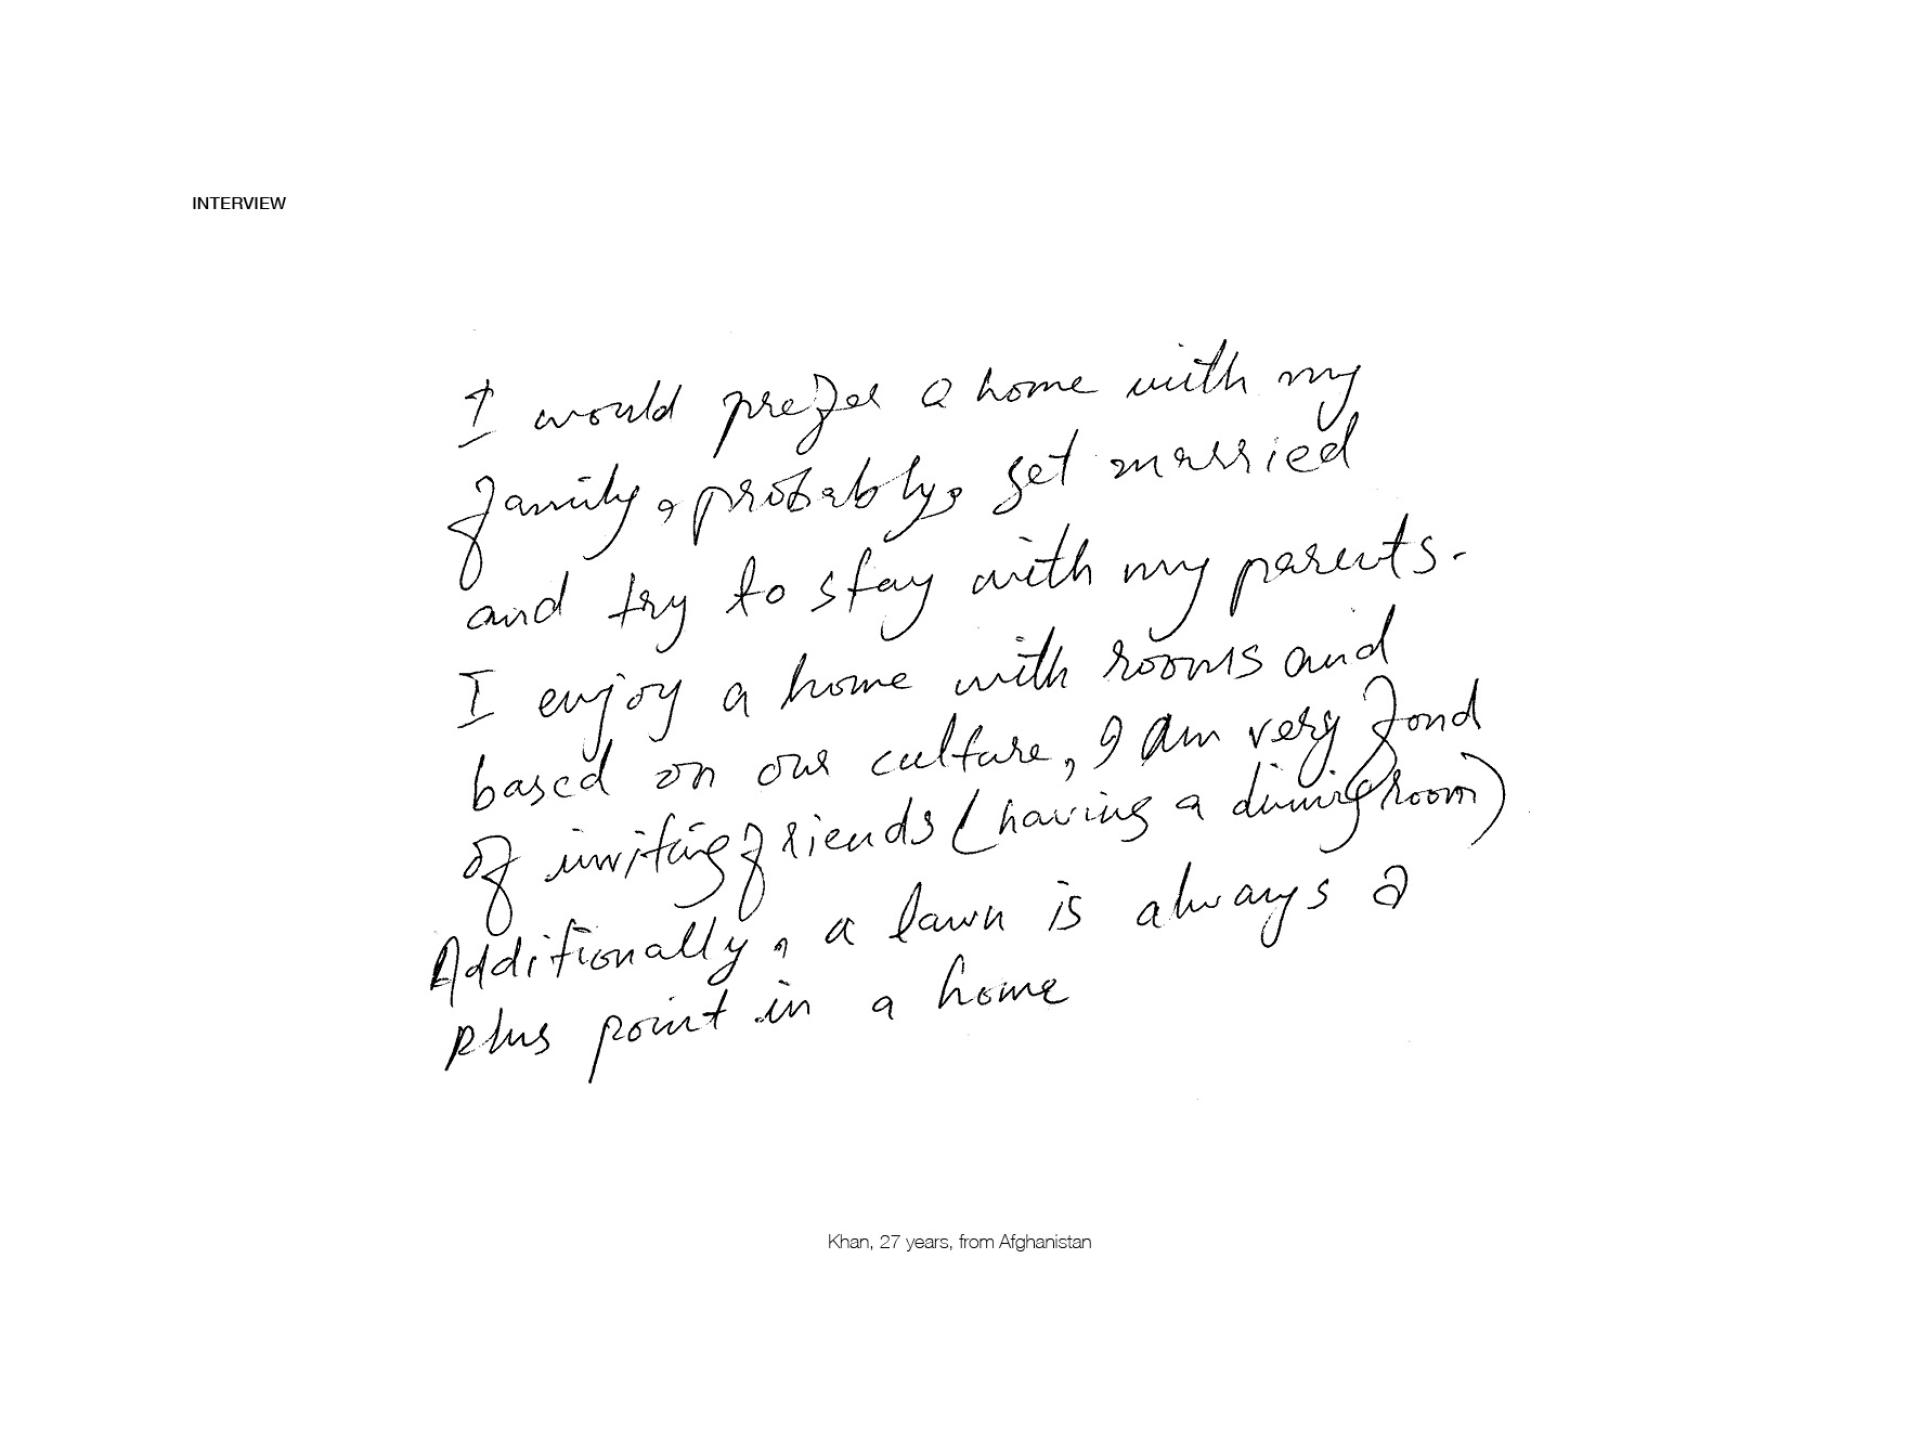 INTERVIEW
I would prefer a home with my
family, probably, get married
and try to stay with my parents.
I enjoy a home with rooms and
based on our culture, I am very fond
of inviting friends (having a dining room)
Additionally, a lawn is always a
plus point in a home
Khan, 27 years, from Afghanistan